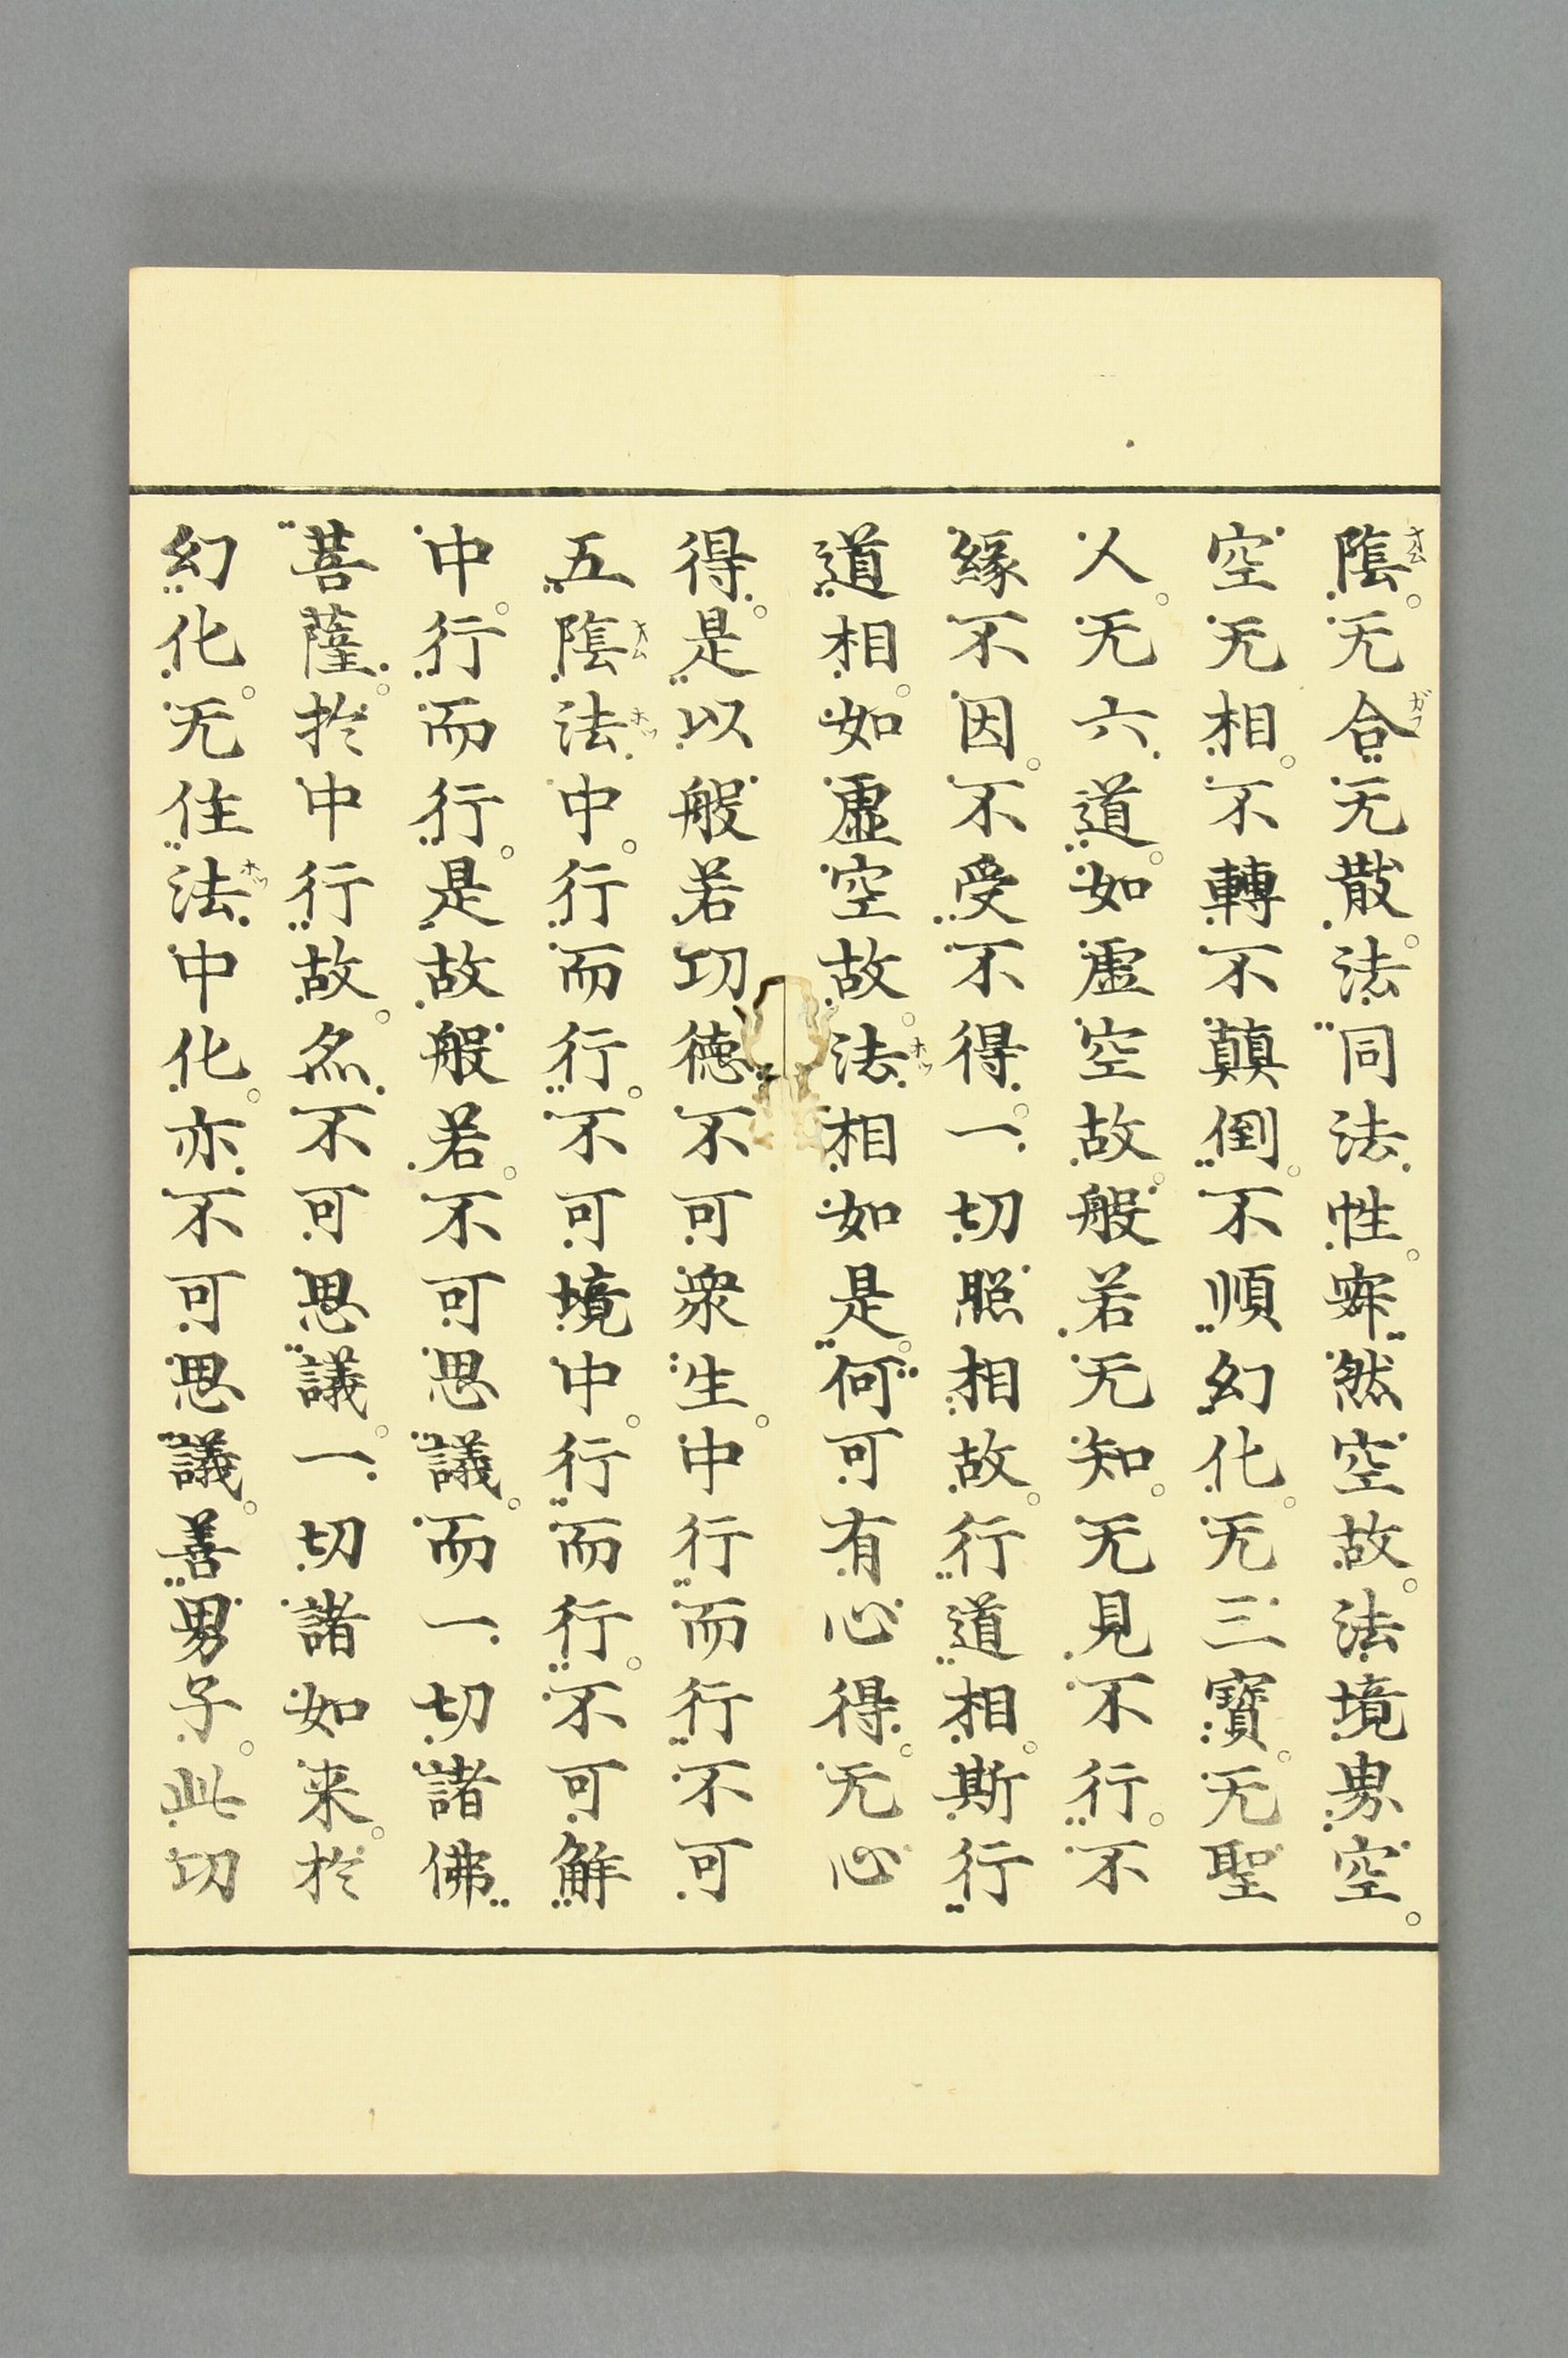 陰。无合无散。法同法性。寂然空故。法境界空。
空无相。不轉不顛倒。不順幻化。无三寶。无聖
人。无六道。如虛空故。般若无知。无見不行。不
緣不因。不受不得。一切照相故。行道相。斯行
道相。如虛空故。法相如是。何可有心得。无心
得。是以般若功德不可衆生。中行而行不可
五陰法中。行而行。不可境中。行而行。不可解
中。行而行。是故般若。不可思議。而一切諸佛
菩薩。於中行故。名不可思議。一切諸如来。於
幻化。无住法中化。亦不可思議。善男子。此功